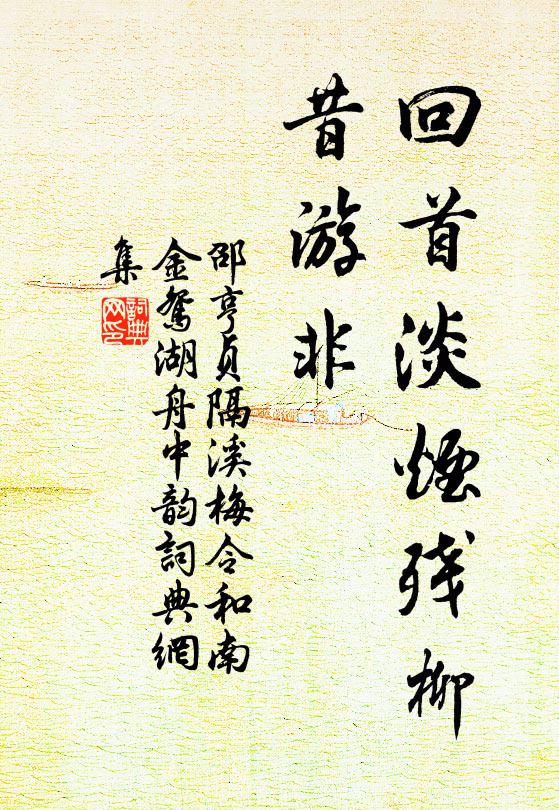 回首淡煙残柳
昔游非
邵亨貞隔溪梅令和南
金鴛湖舟中韵詞典網
集
詞典
网印